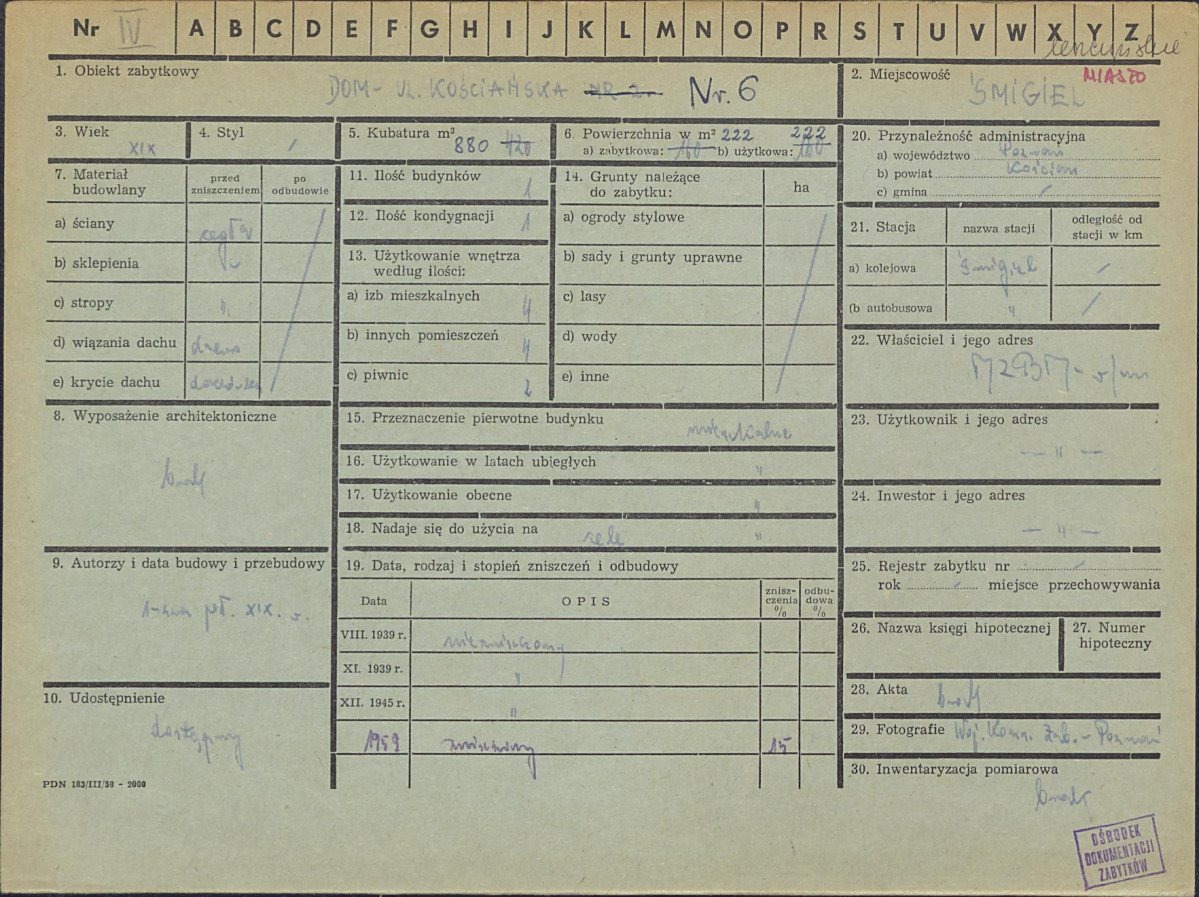 Nr IV A B C D E F G H I J K L M N O P R S T U V W X Y Z
1. Obiekt zabytkowy
DOM - UL. KOŚCIAŃSKA NR 2. Nr. 6
2. Miejscowość MIASTO
ŚMIGIEL
3. Wiek
XIX
4. Styl
/
5. Kubatura m³
880 420
6. Powierzchnia w m² 222 222
a) zabytkowa: 160 b) użytkowa: 160
20. Przynależność administracyjna
a) województwo Poznań
b) powiat Kościan
c) gmina /
7. Materiał budowlany
przed zniszczeniem
po odbudowie
a) ściany cegła
b) sklepienia "
c) stropy "
d) wiązania dachu drewno
e) krycie dachu dachówka
8. Wyposażenie architektoniczne
brak
9. Autorzy i data budowy i przebudowy
1-wsza poł. XIX. w.
10. Udostępnienie
dostępny
PDN 183/III/58 - 2000
11. Ilość budynków 1
12. Ilość kondygnacji 1
13. Użytkowanie wnętrza
według ilości:
a) izb mieszkalnych 4
b) innych pomieszczeń 4
c) piwnic 2
14. Grunty należące
do zabytku:
ha
a) ogrody stylowe
b) sady i grunty uprawne
c) lasy
d) wody
e) inne
15. Przeznaczenie pierwotne budynku
mieszkalne
16. Użytkowanie w latach ubiegłych "
17. Użytkowanie obecne "
18. Nadaje się do użycia na cele "
19. Data, rodzaj i stopień zniszczeń i odbudowy
Data
OPIS
znisz-
czenia
%
odbu-
dowa
%
VIII. 1939 r. niezniszczony
XI. 1939 r. "
XII. 1945 r. "
1959 zniszczony 15
21. Stacja
nazwa stacji
odległość od
stacji w km
a) kolejowa Śmigiel /
(b autobusowa " /
22. Właściciel i jego adres
MZBM - w/m
23. Użytkownik i jego adres
— " —
24. Inwestor i jego adres
— " —
25. Rejestr zabytku nr /
rok / miejsce przechowywania
26. Nazwa księgi hipotecznej
27. Numer
hipoteczny
28. Akta brak
29. Fotografie Woj. Kons. Zab. - Poznań
30. Inwentaryzacja pomiarowa
brak
OŚRODEK
DOKUMENTACJI
ZABYTKÓW